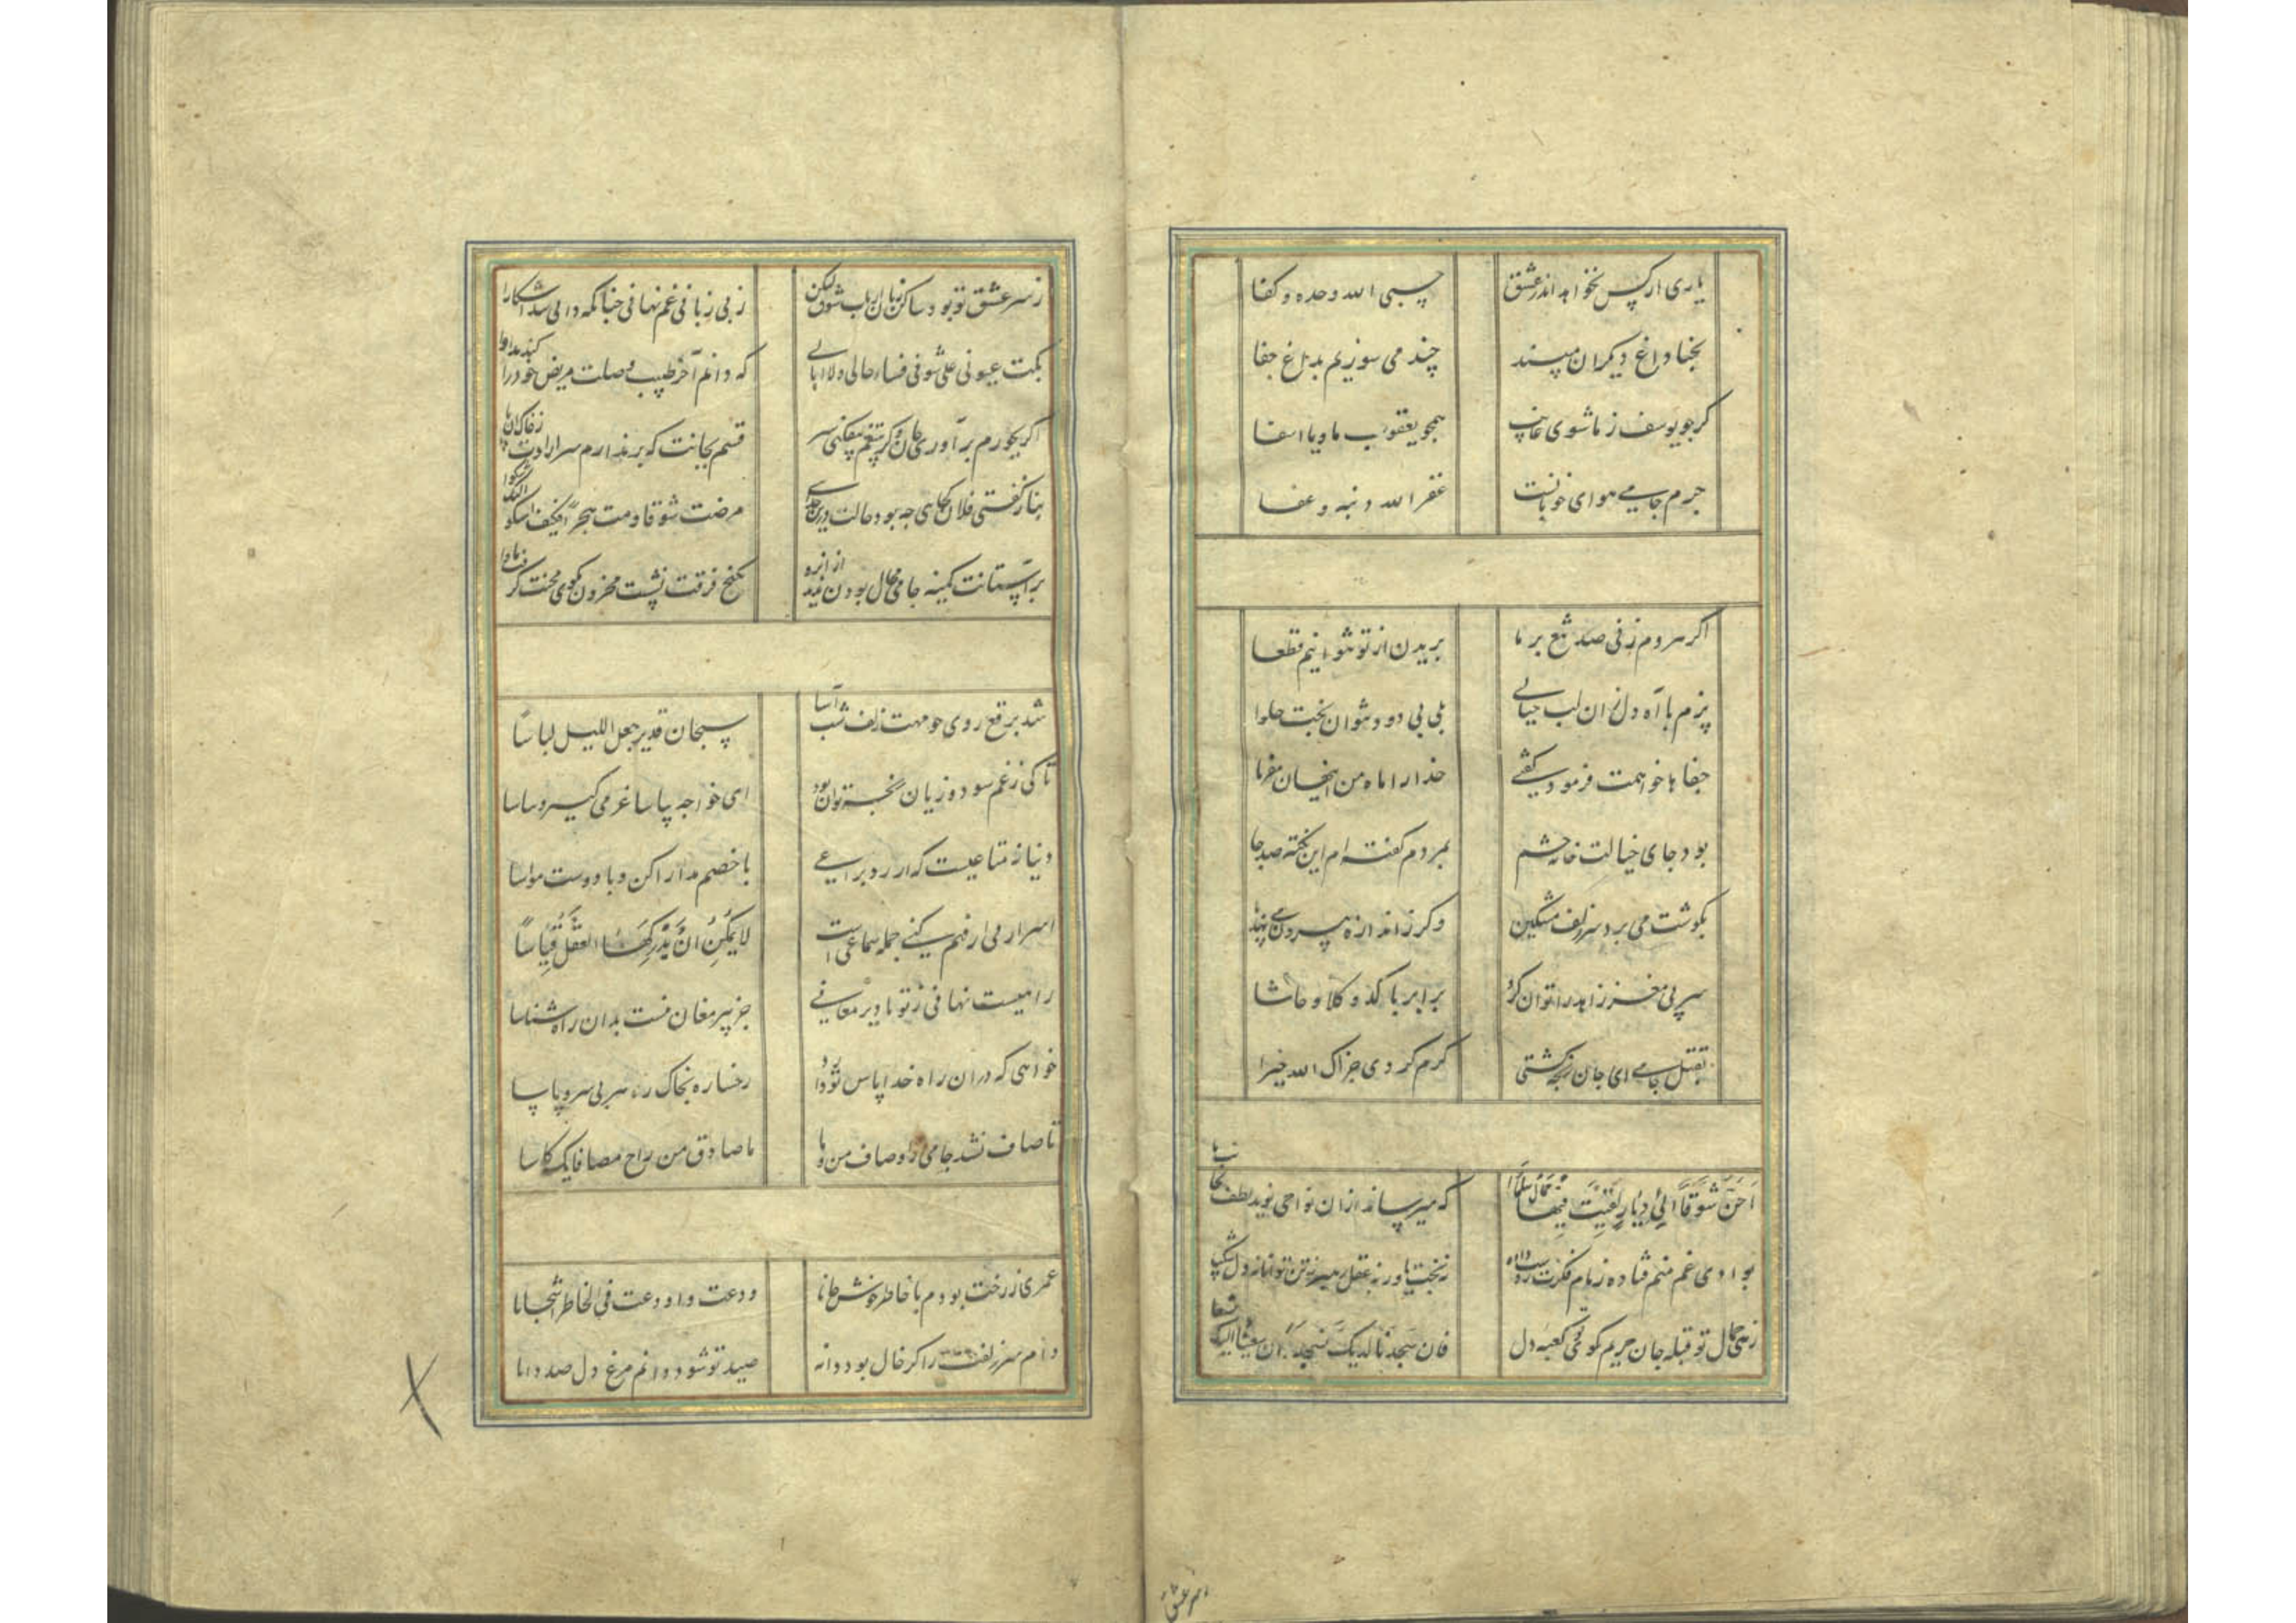 یاری از کس نخواهد اندر عشق حسبی الله وحده و کفا
بخفا داغ دیکران مپسند چند می سوزیم بداغ جفا
کر چو یوسف ز ما شوی غایب همچو یعقوب ما و یا اسفا
جرم جامی هوای خوبانست غفر الله ذنبه و عفا
اکر مردم زنی صد تیغ بر ما بریدن از تو نتوانیم قطعا
پزم با آه دل زان لب خیالی بلی بی دود نتوان پخت حلوا
جفاها خواهمت فرمود کفتی خدا را ماه من اینسان مفرما
بود جای خیالت خانه چشم بمردم کفته ام این نکته صد جا
بکوشت می برد سر زلف مشکین وکر ز اندازه بیرون می نهد پا
سر بی مغز زاهد را توان کرد برابر با کدو کلا و حاشا
بقتل جامی ای جان رنجه کشتی کرم کردی جزاک الله خیرا
اَحِنُّ شَوْقًا اِلیٰ دِیَارٍ لَقِیتُ فِیْهَا جَمَالَ سَلْمَا که میرساند ازان نواحی نوید لطف بجانب ما
بوادی غم منم فتاده زمام فکرت ز دست داده نه بخت یاور نه عقل رهبر نه تن توانا نه دل شکیبا
زهی جمال تو قبله جان حریم کوی تو کعبه دل فان سجدنا الیک نسجد و ان سعینا الیک نسعا
ز سر عشق
ز سر عشق تو بود ساکن زبان ارباب شوق لیکن ز بی زبانی غم نهانی چنانکه دانی شد آشکارا
بکت عیونی علی شؤونی فساء حالی ولا ابالی که دانم آخر طبیب وصلت مریض خود را کند مداوا
اکر بجورم بر آوری جان وکر بتیغم بیفکنی سر قسم بجانت که بر ندارم سر ارادت ز خاک آن پا
بناز کفتی فلان کجایی چه بود حالت درین جدایی مرضت شوقا و مت هجرا فکیف اشکو الیک شکوا
بر آستانت کمینه جامی مجال بودن ندید ازانرو بکنج فرقت نشست محزون بکوی محنت کرفت ماوا
شد برقع روی چو مهت زلف شب آسا سبحان قدیر جعل اللیل لباسا
تا کی ز غم سود و زیان رنجه توان بود ای خواجه بیا ساغر می کیر و بیاسا
دنیا نه متاعیست که ارزد بنزاعی با خصم مدارا کن و با دوست مواسا
اسرار می ار فهم کنی جمله سماعی است لَا یُمْکِنُ اَنْ یُدْرِکَهَا العَقْلُ قِیَاسًا
راهیست نهانی ز تو تا دیر معانی جز پیر مغان نیست بدان راه شناسا
خواهی که دران راه خدا پاس تو دارد رخساره بخاک ره هر بی سر و پا سا
تا صاف نشد جامی از اوصاف من و ما ما صادق من راح مصافاتک کاسا
عمری ز رخت بودم با خاطر خوش جانا ودعت و اودعت فی الخاطر اشجانا
دام سر زلفت را کر خال بود دانه صید تو شود دانم مرغ دل صد دانا